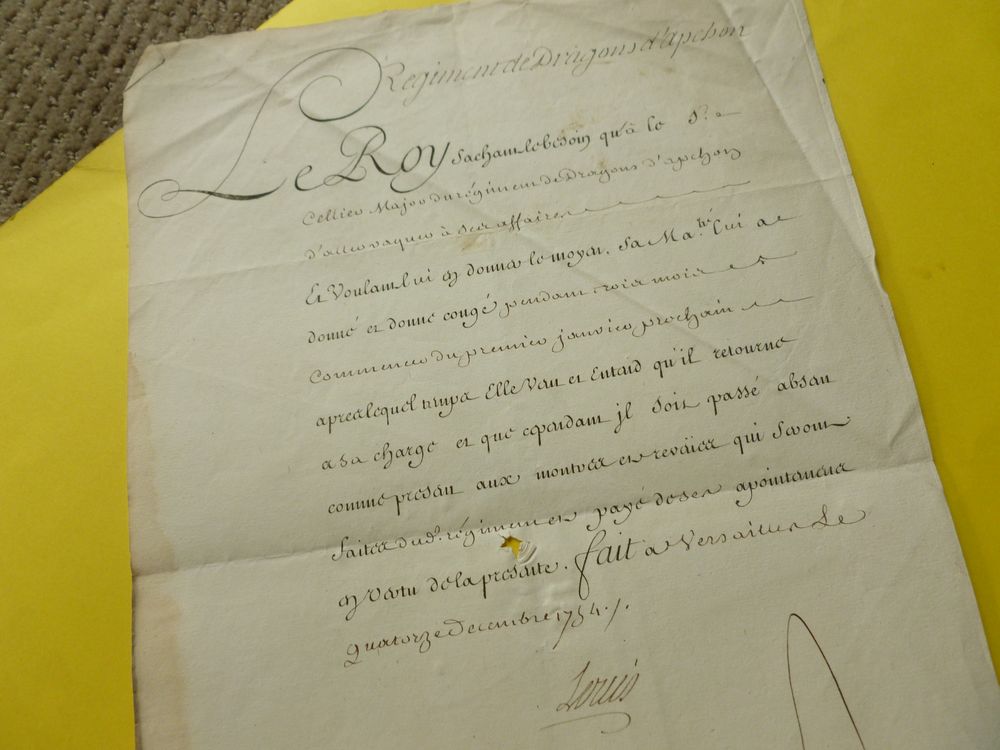 Regiment de Dragons d'Apchon
Le Roy sachant le besoin qu'à le S.r
Cellier Major du régiment de Dragons d'apchon
d'aller vaquer à ses affaires
Et Voulant lui en donner le moyen, Sa Ma.té lui a
donné et donne congé pendant trois mois à
Commencer du premier janvier prochain
apres lequel temps Elle Veut et Entend qu'il retourne
a sa charge et que cependant jl soit passé absent
comme present aux montres et reveües qui seront
faites dud.t régiment et payé de ses apointemens
en vertu de la presente. fait a Versailles Le
quatorze Decembre 1754./.
Louis